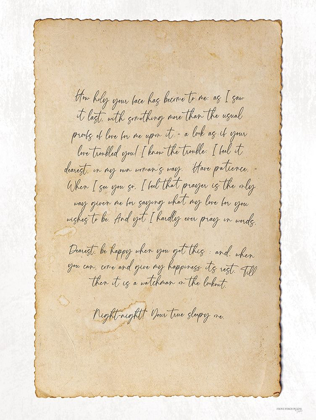 How holy your face has become to me: as I saw
it last, with something more than the usual
proofs of love for me upon it: - a look as if your
love troubled you! I know the trouble: I feel it,
dearest, in my own woman's way. Have patience. -
When I see you so, I feel that prayer is the only
way given me for saying what my love for you
wishes to be. And yet I hardly ever pray in words.
Dearest, be happy when you get this: and, when
you can, come and give my happiness its rest. Till
then it is a watchman on the lookout.
Night-night! Your true sleepy one.